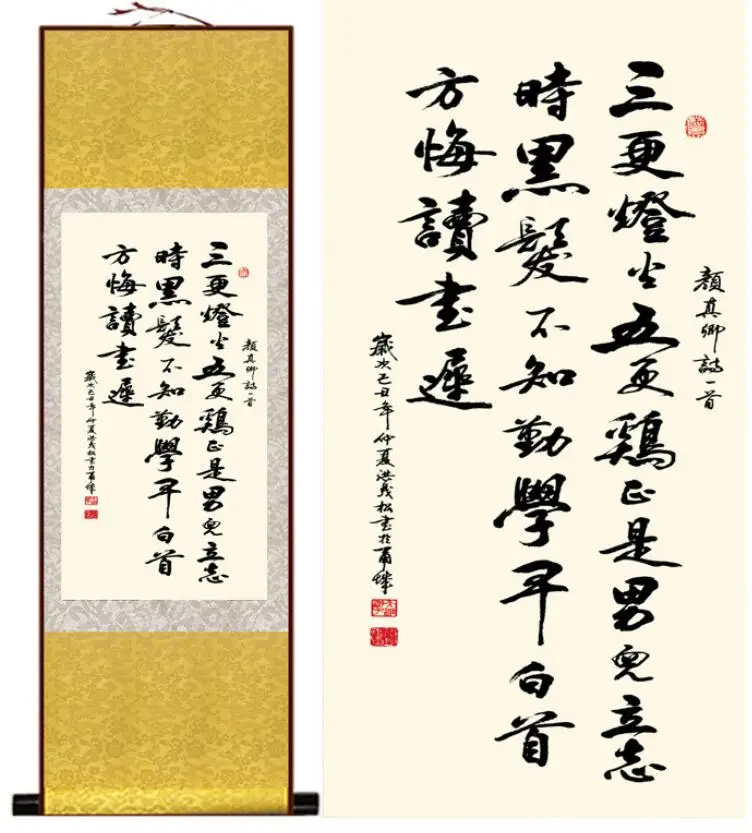 三更燈火五更鷄正是男兒立志
時黑髮不知勤學早白首
方悔讀書遲
顏真卿詩一首
歲次己丑年仲夏洪松書於
三更燈火五更鷄正是男兒立志
時黑髮不知勤學早白首
方悔讀書遲
顏真卿詩一首
歲次己丑年仲夏洪松書於